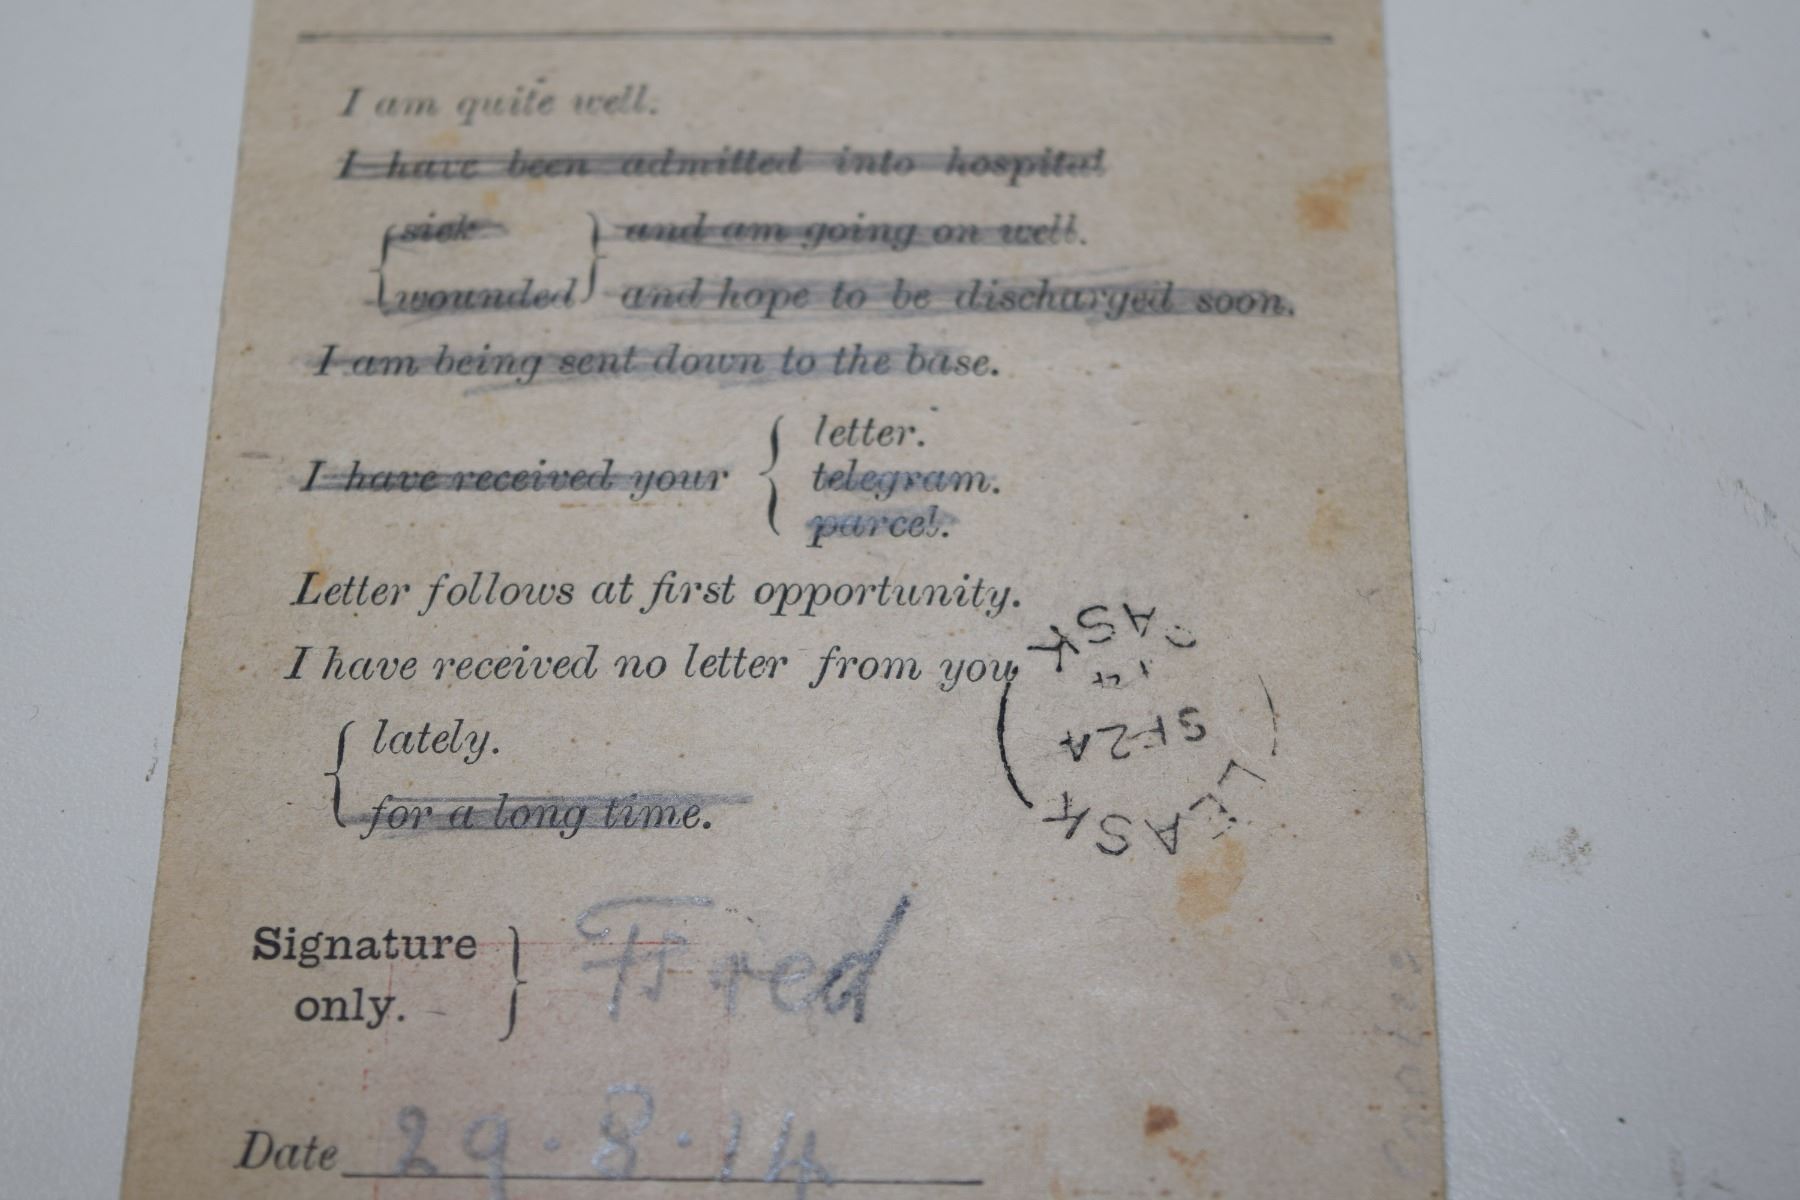 I am quite well.
I have been admitted into hospital
sick and am going on well.
wounded and hope to be discharged soon.
I am being sent down to the base.
letter.
I have received your telegram.
parcel.
Letter follows at first opportunity.
I have received no letter from you
lately.
for a long time.
LEASK
SASK
Signature only. Fred
Date 29.8.14